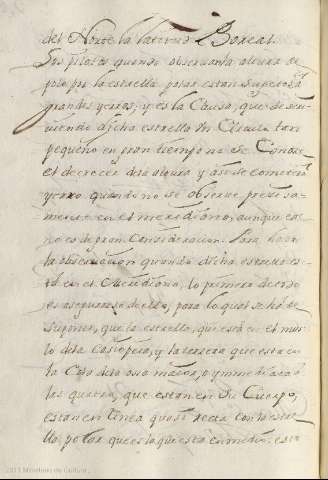 del Norte la latitud Boreal.
Los pilotos quando observan la altura de
polo por la estrella polar estan supuestos à
grandes yerros; y es la causa, que descri
viendo dicha estrella un Circulo tan
pequeño en gran tiempo no se Conoce
el decrecer dela altura y assi se cometera
yerro quando no se observe precisa-
mente en el meridiano, aunque es-
no es de gran Consideracion. Para hacer
la observacion quando dicha estrella es-
tà en el Meridiano, lo primero de todo
es asegurarse de ello, para lo qual se ha de
suponer, que la estrella, que està en el mus-
lo dela Casiopea, y la tercera que esta en
la Cola dela osa maior, o y mmediata à
las quatro, que estan en su Cuerpo,
estan en linea quasi recta con la estre-
lla polar que es la que està en medio: esto
2013 Ministerio de Cultura